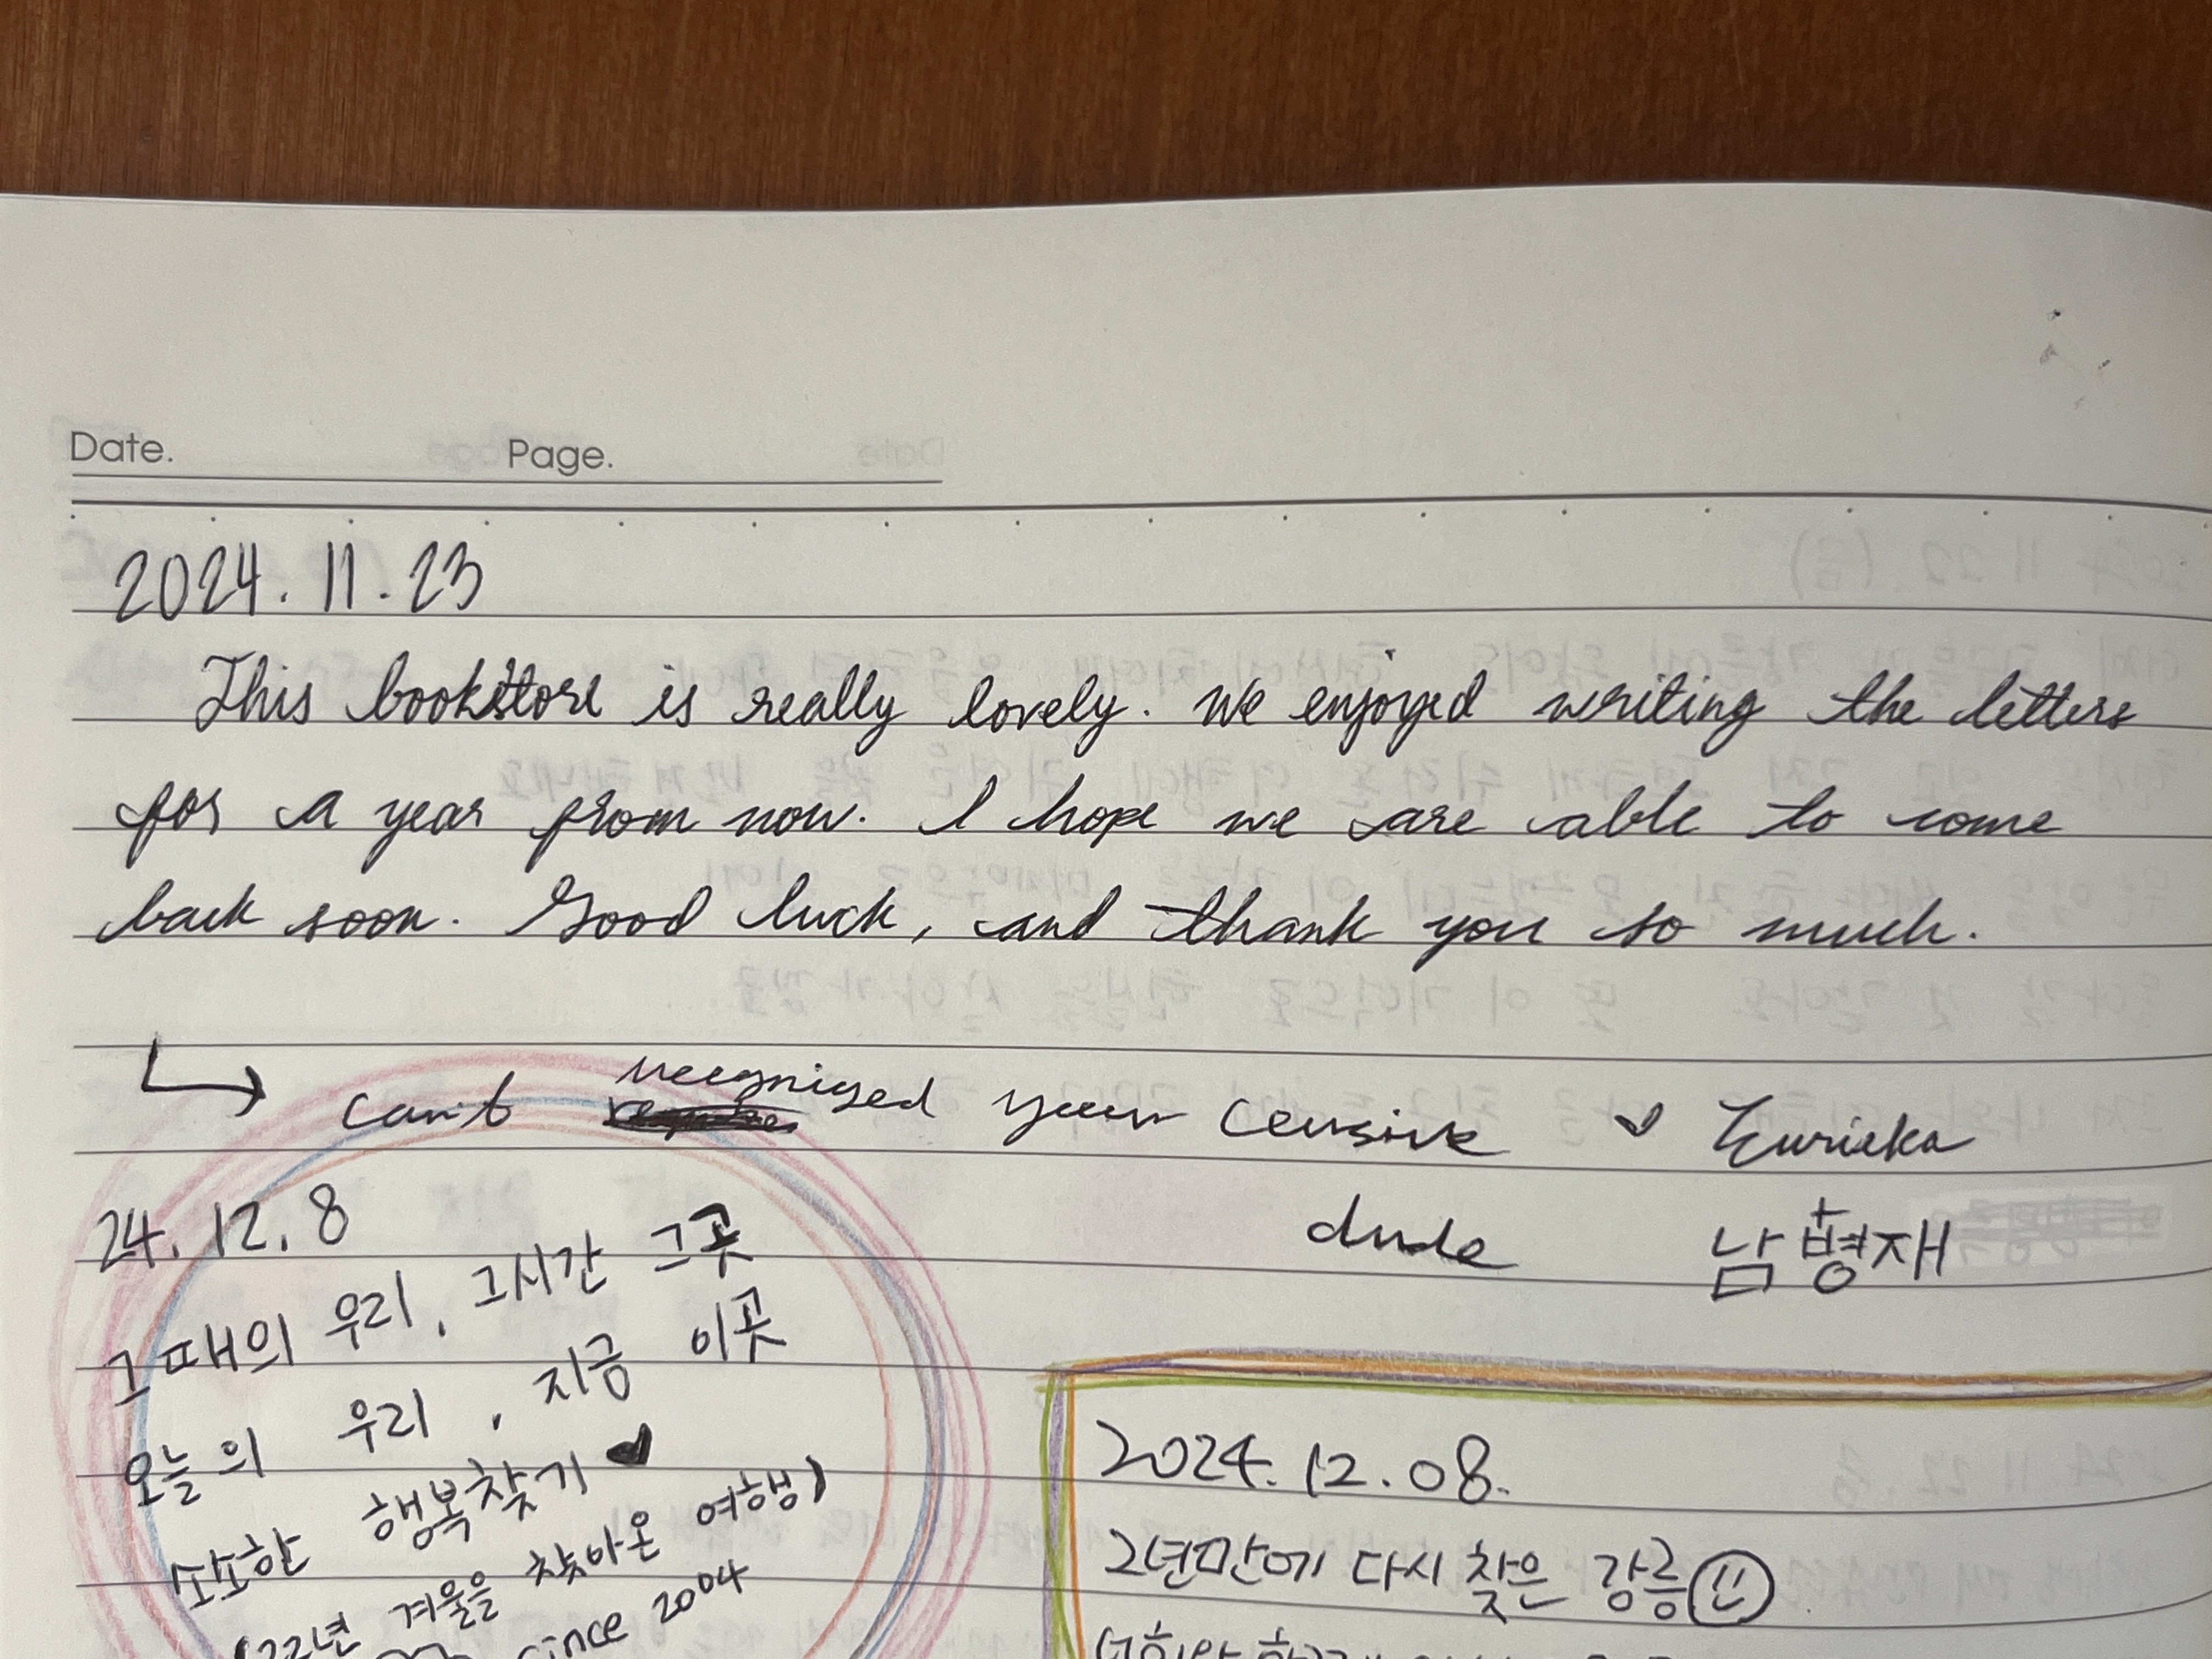 Date. Page.
2024. 11. 23
This bookstore is really lovely. We enjoyed writing the letters
for a year from now. I hope we are able to come
back soon. Good luck, and thank you so much.
can't recognised your cursive ♥ Eurieka
dude 남병재
24. 12. 8
그때의 우리, 그시간 그곳
오늘의 우리, 지금 이곳
소소한 행복찾기 ♥
(22년 겨울을 찾아온 여행)
since 2004
2024. 12. 08.
2년만에 다시 찾은 강릉